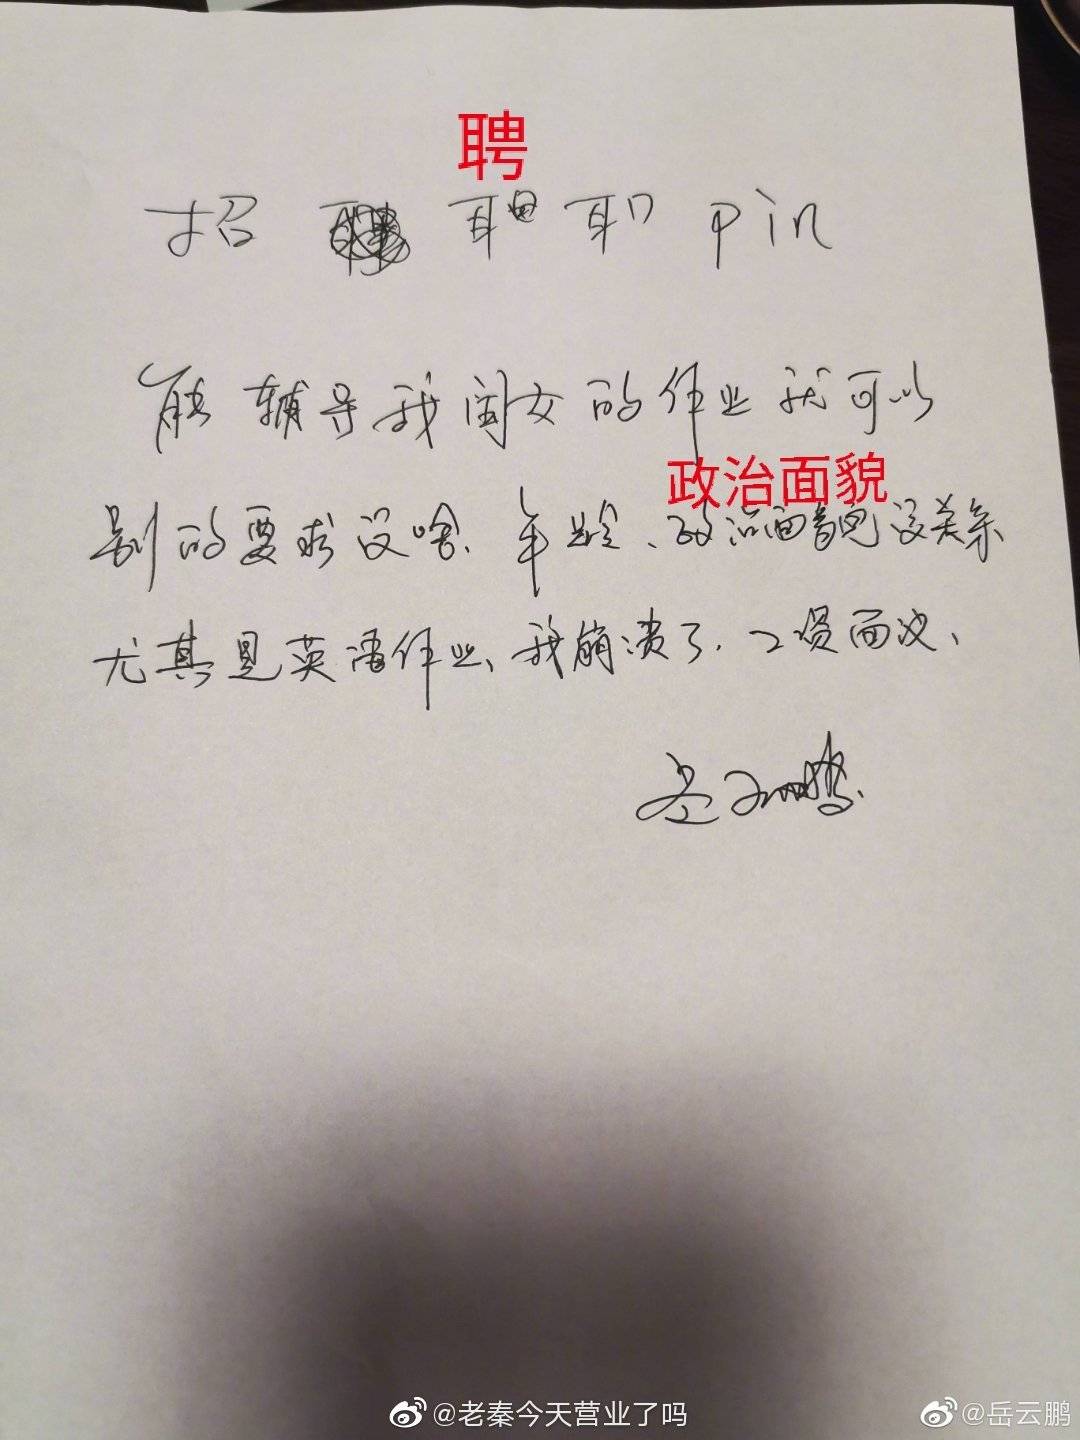 聘
招 耳 职 pin
能辅导我闺女的作业就可以
政治面貌
别的要求没啥、年龄、政治面貌没关系
尤其是英语作业、我崩溃了.工资面议、
岳云鹏
@老秦今天营业了吗
@岳云鹏